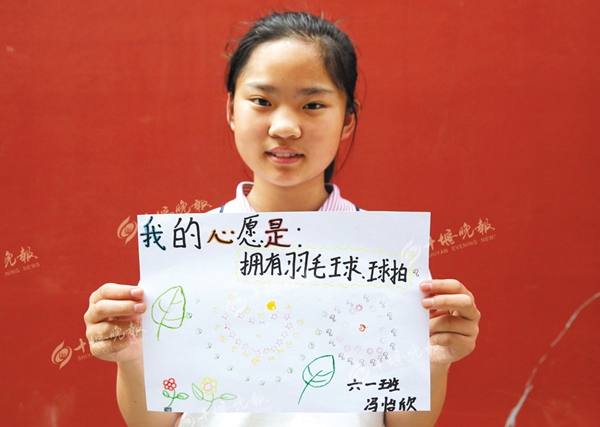 我的心愿是:
拥有羽毛球、球拍。
六一班
冯怡欣
十堰晚报
SHIYAN EVENING NEWS
十堰晚报
SHIYAN EVENING NEWS
晚报
NING NEWS
十堰晚报
SHIYAN EVENING NEWS